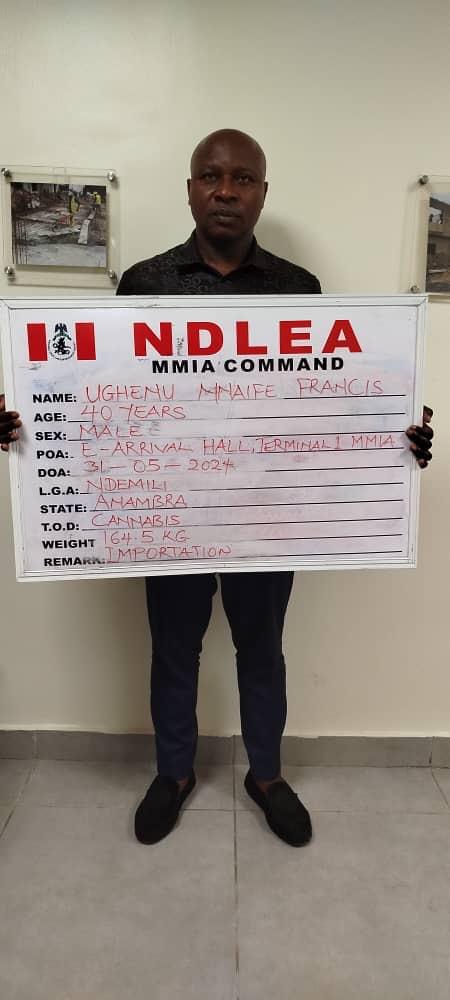 NDLEA
MMIA COMMAND
NAME: UGHENU MNAIFE FRANCIS
AGE: 40 YEARS
SEX: MALE
POA: E-ARRIVAL HALL, TERMINAL 1 MMIA
DOA: 31-05-2024
L.G.A: NDEMILI
STATE: ANAMBRA
T.O.D: CANNABIS
WEIGHT 164.5 KG
REMARK: IMPORTATION